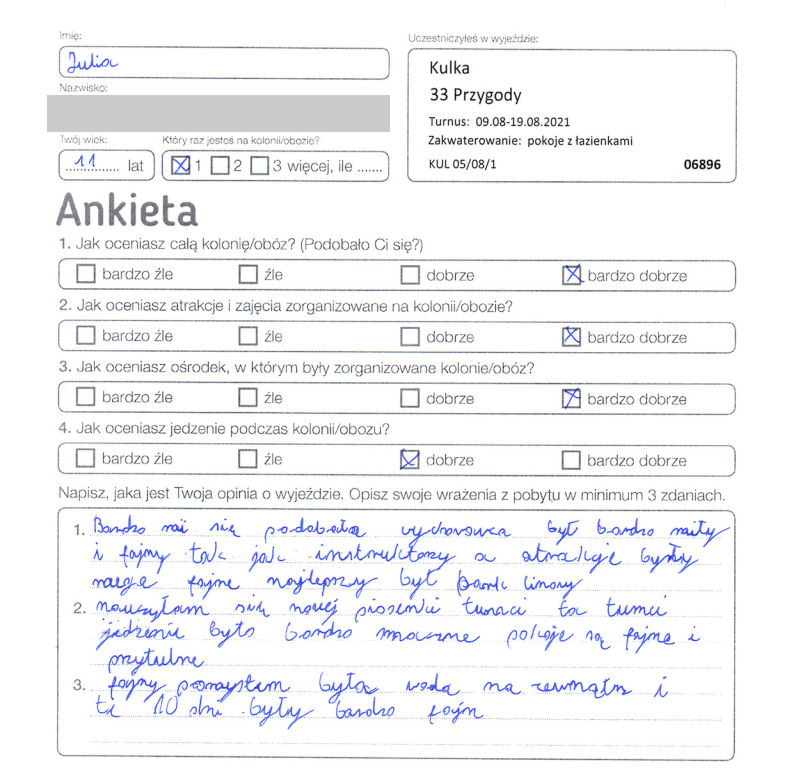 Imię:
Julia
Nazwisko:
Twój wiek:
11 lat
Który raz jesteś na kolonii/obozie?
1 2 3 więcej, ile .......
Uczestniczyłeś w wyjeździe:
Kulka
33 Przygody
Turnus: 09.08-19.08.2021
Zakwaterowanie: pokoje z łazienkami
KUL 05/08/1 06896
Ankieta
1. Jak oceniasz całą kolonię/obóz? (Podobało Ci się?)
bardzo źle źle dobrze bardzo dobrze
2. Jak oceniasz atrakcje i zajęcia zorganizowane na kolonii/obozie?
bardzo źle źle dobrze bardzo dobrze
3. Jak oceniasz ośrodek, w którym były zorganizowane kolonie/obóz?
bardzo źle źle dobrze bardzo dobrze
4. Jak oceniasz jedzenie podczas kolonii/obozu?
bardzo źle źle dobrze bardzo dobrze
Napisz, jaka jest Twoja opinia o wyjeździe. Opisz swoje wrażenia z pobytu w minimum 3 zdaniach.
1. Bardzo mi się podobało wychowawca był bardzo miły
i fajny tak jak instruktorzy a atrakcje były
mega fajne najlepszy był park linowy
2. nauczyłam się nowej piosenki tumaci ta tumci
jedzenie było bardzo smaczne pokoje są fajne i
przytulne
3. fajny pomysłem była woda na zewnątrz i
te 10 dni były bardzo fajn